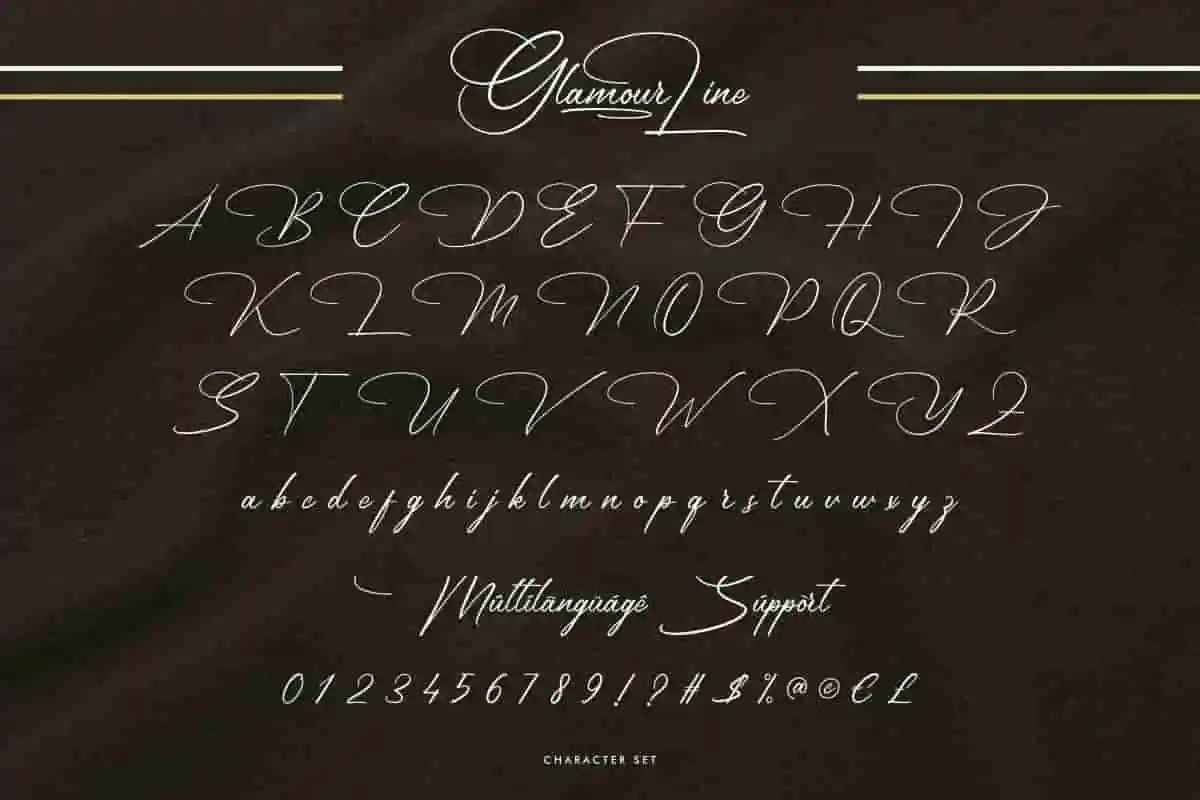 Glamour Line
A B C D E F G H I J
K L M N O P Q R
S T U V W X Y Z
a b c d e f g h i j k l m n o p q r s t u v w x y z
Múltílãngüágé Súppört
0 1 2 3 4 5 6 7 8 9 ! ? # $ % @ © € £
CHARACTER SET